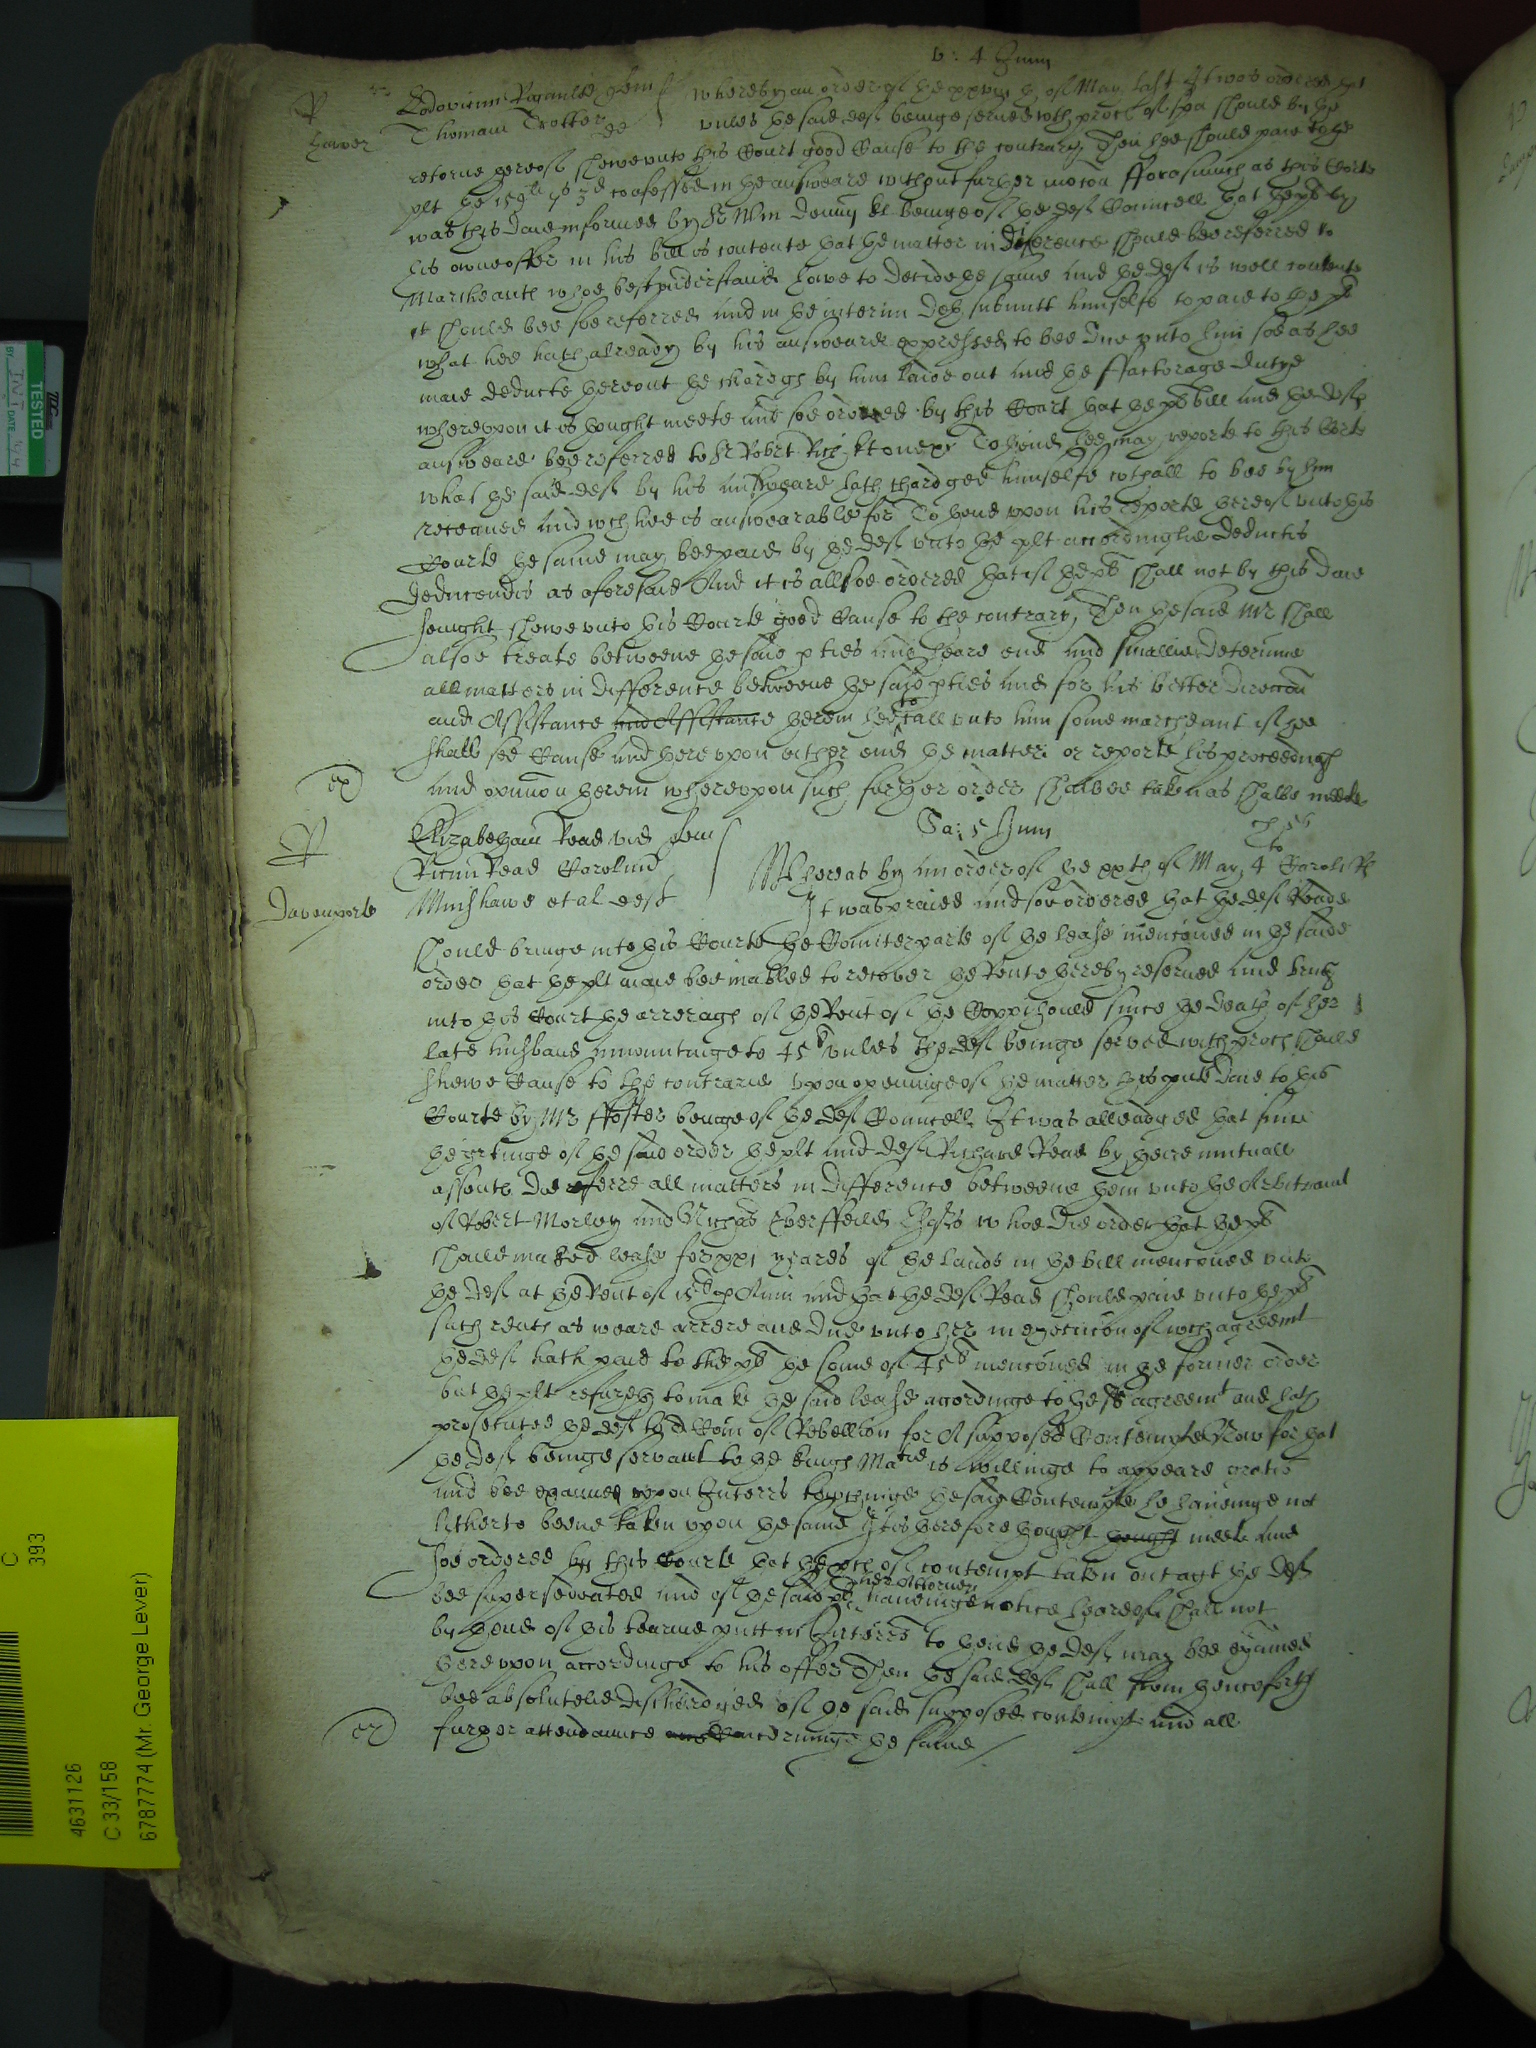 v: 4 Junij
R
Lodovicum quer
Whereas by an order of the xxvij th of May last It was ordered that
Harper
Thomam Trotter def
unles the said deft beinge served with proces of spa should by the
retorne thereof shewe unto this Court good Cause to the contrary Then hee should paie to the
plt the 159li 7s 3d confessed in the answeare without further mocon fforasmuch as this Corte
was this daie informed by Sr Wm Denny kt beinge of the deft Councell that the plt by
his owne offer in his bill is contente that the matter in difference should bee referred to
Marchants whoe best understand howe to decide the same and the deft is well contente
it should bee soe referred and in the interim doth submitt himselfe to paie to the plt
what hee hath already by his answeare expressed to bee due unto him soe as hee
maie deducte thereout the chardges by him laide out and the ffactorage dutye
whereupon it is thought meete and soe ordered by this Court that the plts bill and the defts
answeare bee referred to Sr Robrt Rich kt one &c To thend hee may reporte to this Corte
what the said deft by his answeare hath chardged himselfe withall to bee by him
receaued and wch hee is answearable for To thend upon his reporte thereof unto this
Courte the same may bee paid by the deft unto the plt accordinglie deductis
deducendis as aforesaid And it is allsoe ordered that if the plt shall not by this daie
senight shewe unto this Courte good Cause to the contrary, Then the said Mr shall
alsoe treate betweene the said pties and heare end and finallie determine
all matters in difference betweene the said pties and for his better direccon
and Assistance and Assistance therein hee to call unto him some marcheant if hee
shall see Cause and thereupon either end the matter or reporte his proceedings
ex
and opinion therein whereupon such further order shalbee taken as shalbe meete
Sa: 5 Junij
R
Elizabetham Read vid quer
Ricum Read Carolum
Whereas by an order of the xxth of May 4 Caroli R
Davenporte
Minshawe et al deft
It was praied and soe ordered that the deft Reade
should bringe into this Courte the Counterparte of the lease menconed in the saide
order that the plt maie bee inabled to recover the Rente thereby reserued and bring
into this Court the arrerages of the Rent of the Coppihould since the death of her
late husband amountinge to 45s unles the deft beinge served with proces should
shewe Cause to the contrarie upon openinge of the matter this pnte daie to this
Courte by Mr ffoster beinge of the deft Councell It was alleadged that since
the gettinge of the said order the plt and deft Richard Read by theire mutuall
assents did referre all matters in difference betweene them unto the Arbitramt
of Robert Morley and Nichas Everffeild Esqrs whoe did order that the plt
should make a lease for xxi yeares of the lands in the bill menconed unto
the deft at the Rent of p Ann and that the deft Read should paie unto the plt
such rents as weare arrere and due unto her in execucon of wch agreemt
the deft hath paid to the plt the some of 45s menconed in the former order
but the plt refuseth to make the said lease acordinge to the sd agreemt and hath
prosecuted the deft to a Com of Rebellion for A supposed Contempte Now for that
the deft beinge servant to the kings Matie is willinge to appeare gratis
and bee exaned upon Interrs touchinge the said Contempte he havinge not
hitherto beene taken upon the same It is therefore thought thought meete and
soe ordered by this Courte that the pces of contempt taken out agt the deft
bee superseadeated and if the said plt her Attorney havinge notice hereof shall not
by thend of this tearme putt in Interrs to thend the deft may bee exained
thereupon accordinge to his offer Then the said deft shall from henceforth
bee absolutelie discherdged of the said supposed contempt and all
ex
further attendaunce concerninge the same
TESTED
BY
DATE
C
393
4631126
C 33/158
6787774 (Mr. George Lever)